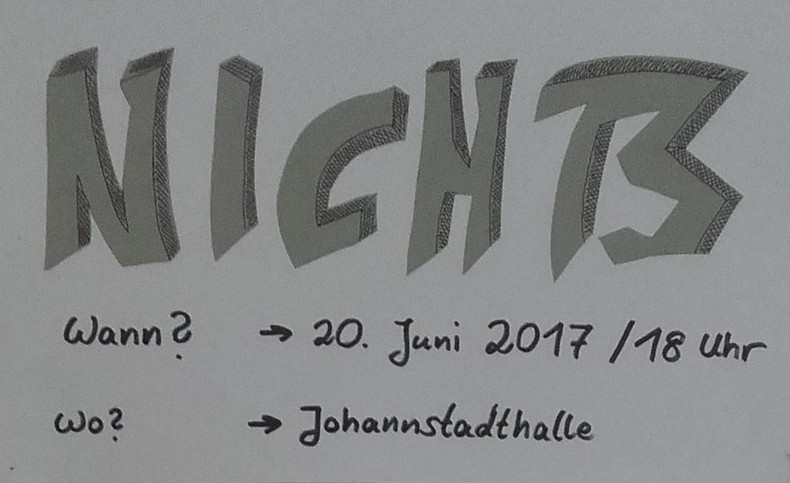 NICHTS
Wann? → 20. Juni 2017 / 18 Uhr
Wo? → Johannstadthalle